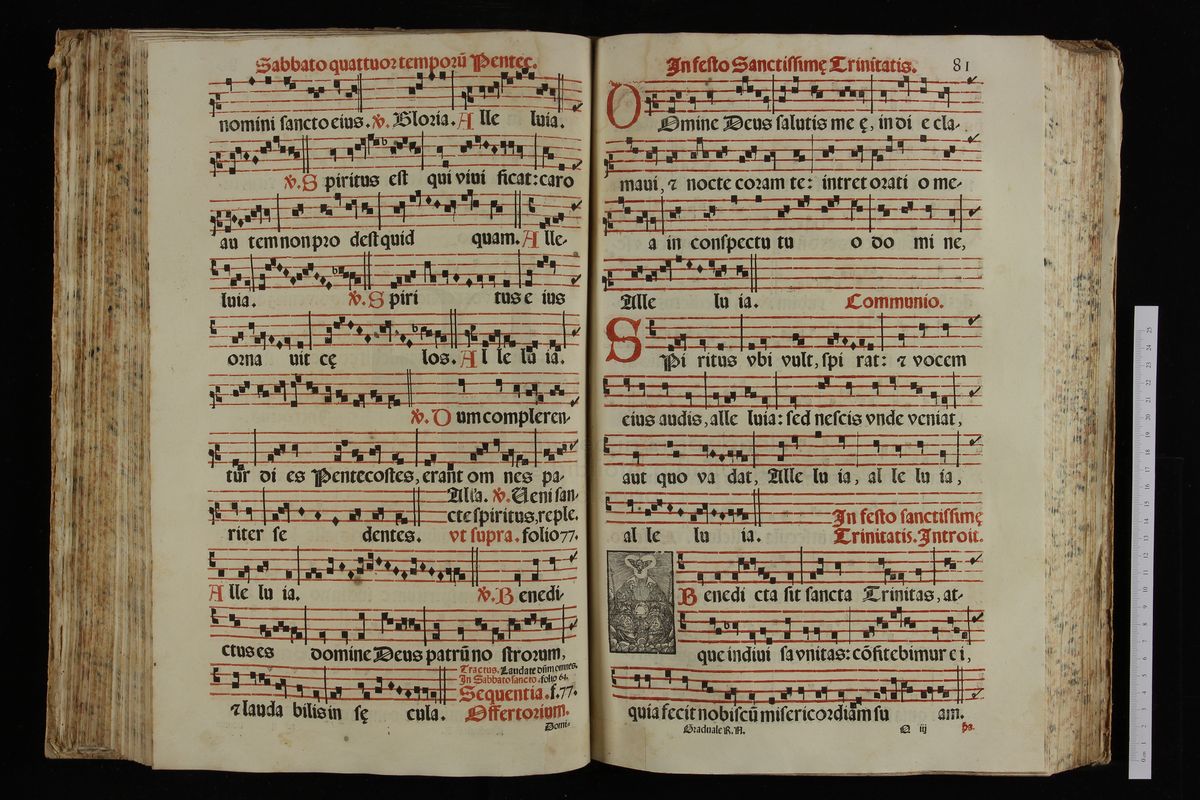 Sabbato quattuor temporū Pentec.
nomini sancto eius. ℣. Gloria. Alle luia.
℣. Spiritus est qui viui ficat: caro
au tem non pro dest quid quam. Alle-
luia. ℣. Spiri tus e ius
orna uit cę los. Al le lu ia.
℣. Dum compleren-
tur di es Pentecostes, erant om nes pa-
Alľa. ℣. Ueni san-
cte spiritus, reple.
riter se dentes. vt supra. folio 77.
Alle lu ia. ℣. Benedi-
ctus es domine Deus patrū no strorum,
Tractus. Laudate dn̄m omnes.
In Sabbato sancto. folio 64.
Sequentia. f. 77.
⁊ lauda bilis in sę cula. Offertorium.
Domi-
In festo Sanctissimę Trinitatis. 81
DOmine Deus salutis me ę, in di e cla-
maui, ⁊ nocte coram te: intret orati o me-
a in conspectu tu o do mi ne,
Alle lu ia. Communio.
SPi ritus vbi vult, spi rat: ⁊ vocem
eius audis, alle luia: sed nescis vnde veniat,
aut quo va dat, Alle lu ia, al le lu ia,
In festo sanctissimę
al le lu ia. Trinitatis. Introit.
Benedi cta sit sancta Trinitas, at-
que indiui sa vnitas: cōfitebimur e i,
quia fecit nobiscū misericordiam su am.
Graduale R. N. Q iij ps.